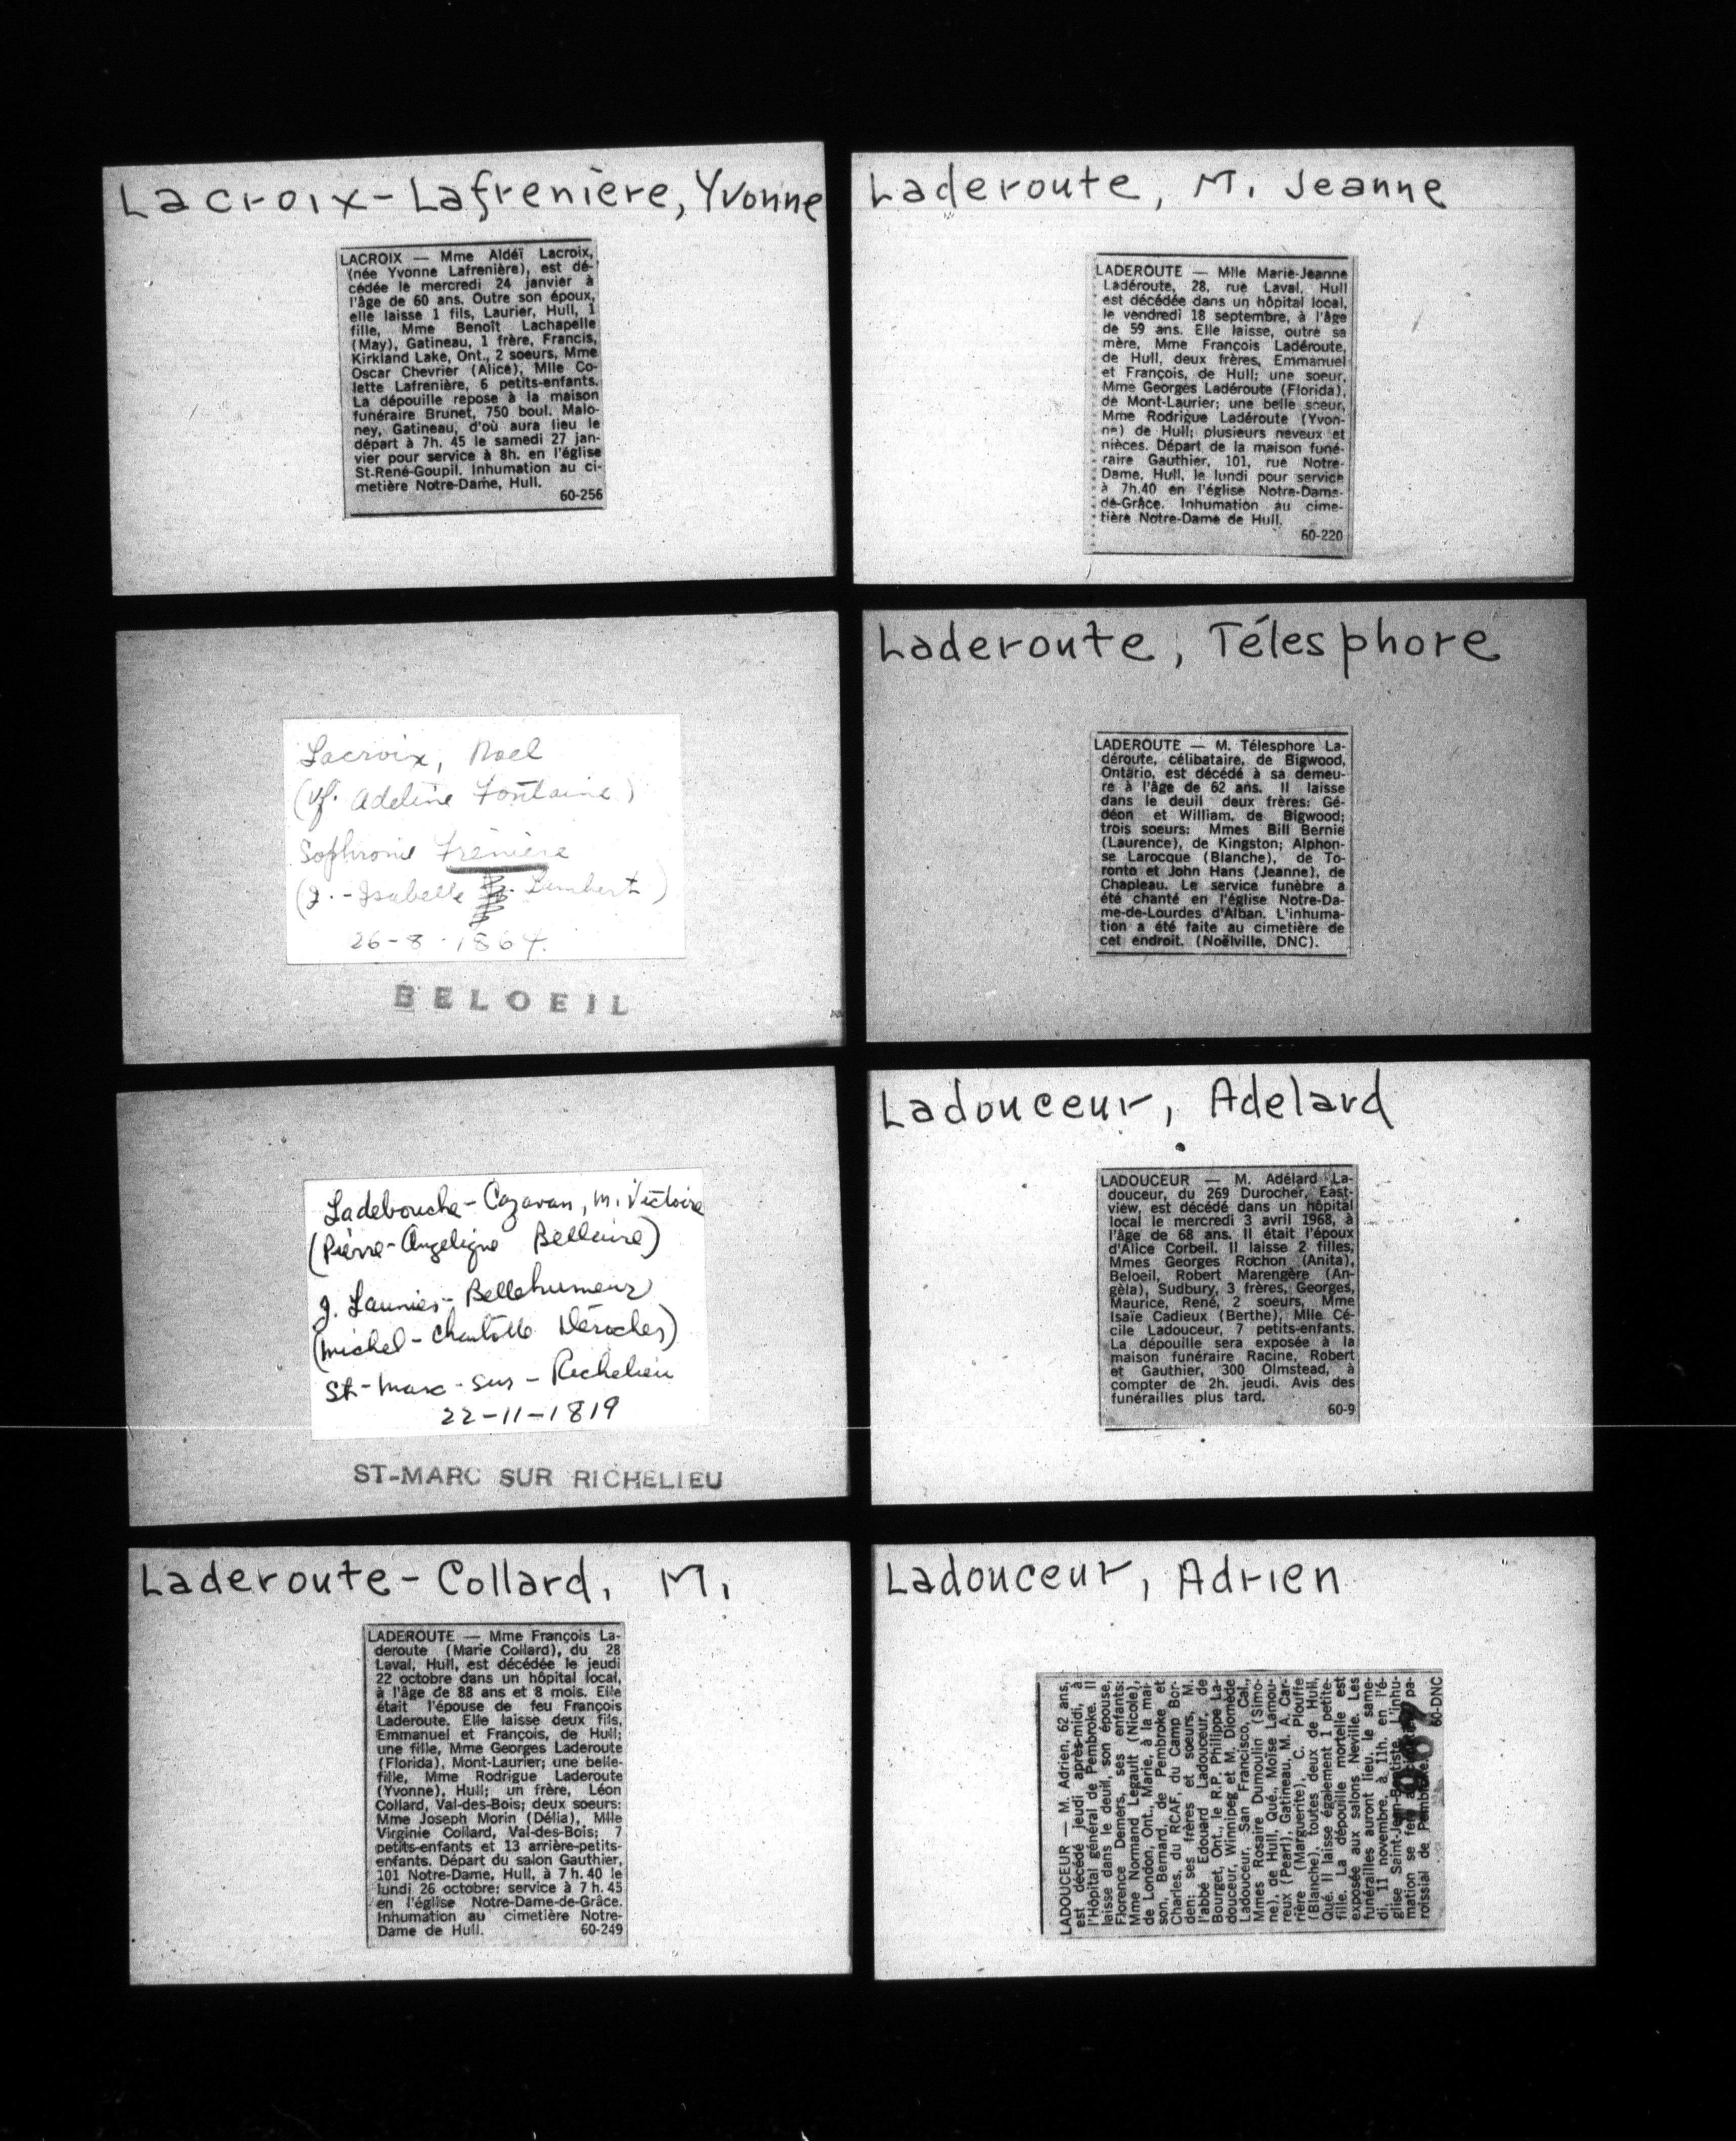 Lacroix-Lafrenière, Yvonne
LACROIX — Mme Aldéï Lacroix,
(née Yvonne Lafrenière), est dé-
cédée le mercredi 24 janvier à
l'âge de 60 ans. Outre son époux,
elle laisse 1 fils, Laurier, Hull, 1
fille, Mme Benoît Lachapelle
(May), Gatineau, 1 frère, Francis,
Kirkland Lake, Ont., 2 soeurs, Mme
Oscar Chevrier (Alice), Mlle Co-
lette Lafrenière, 6 petits-enfants.
La dépouille repose à la maison
funéraire Brunet, 750 boul. Malo-
ney, Gatineau, d'où aura lieu le
départ à 7h. 45 le samedi 27 jan-
vier pour service à 8h. en l'église
St-René-Goupil. Inhumation au ci-
metière Notre-Dame, Hull.
60-256
Lacroix, Noel
(vf. Adeline Fontaine)
Sophronie Frenière
(J.-Isabelle Lambert)
26-8-1864.
BELOEIL
Ladebouche-Cazavan, M. Victoire
(Pierre-Angelique Bellaire)
J. Launier-Bellehumeur
(Michel-Charlotte Deroches)
St-Marc-sur-Richelieu
22-11-1819
ST-MARC SUR RICHELIEU
Laderoute-Collard, M.
LADEROUTE — Mme François La-
deroute (Marie Collard), du 28
Laval, Hull, est décédée le jeudi
22 octobre dans un hôpital local,
à l'âge de 88 ans et 8 mois. Elle
était l'épouse de feu François
Laderoute. Elle laisse deux fils,
Emmanuel et François, de Hull;
une fille, Mme Georges Laderoute
(Florida), Mont-Laurier; une belle-
fille, Mme Rodrigue Laderoute
(Yvonne), Hull; un frère, Léon
Collard, Val-des-Bois; deux soeurs:
Mme Joseph Morin (Délia), Mlle
Virginie Collard, Val-des-Bois; 7
petits-enfants et 13 arrière-petits-
enfants. Départ du salon Gauthier,
101 Notre-Dame, Hull, à 7 h. 40 le
lundi 26 octobre; service à 7 h. 45
en l'église Notre-Dame-de-Grâce.
Inhumation au cimetière Notre-
Dame de Hull. 60-249
Laderoute, M. Jeanne
LADEROUTE — Mlle Marie-Jeanne
Ladéroute, 28, rue Laval, Hull
est décédée dans un hôpital local,
le vendredi 18 septembre, à l'âge
de 59 ans. Elle laisse, outre sa
mère, Mme François Ladéroute,
de Hull, deux frères, Emmanuel
et François, de Hull; une soeur,
Mme Georges Ladéroute (Florida),
de Mont-Laurier; une belle soeur,
Mme Rodrigue Ladéroute (Yvon-
ne) de Hull; plusieurs neveux et
nièces. Départ de la maison funé-
raire Gauthier, 101, rue Notre-
Dame, Hull, le lundi pour service
à 7h.40 en l'église Notre-Dame-
de-Grâce. Inhumation au cime-
tière Notre-Dame de Hull.
60-220
Laderoute, Télesphore
LADEROUTE — M. Télesphore La-
déroute, célibataire, de Bigwood,
Ontario, est décédé à sa demeu-
re à l'âge de 62 ans. Il laisse
dans le deuil deux frères: Gé-
déon et William, de Bigwood;
trois soeurs: Mmes Bill Bernie
(Laurence), de Kingston; Alphon-
se Larocque (Blanche), de To-
ronto et John Hans (Jeanne), de
Chapleau. Le service funèbre a
été chanté en l'église Notre-Da-
me-de-Lourdes d'Alban. L'inhuma-
tion a été faite au cimetière de
cet endroit. (Noëlville, DNC).
Ladouceur, Adelard
LADOUCEUR — M. Adélard La-
douceur, du 269 Durocher, East-
view, est décédé dans un hôpital
local le mercredi 3 avril 1968, à
l'âge de 68 ans. Il était l'époux
d'Alice Corbeil. Il laisse 2 filles,
Mmes Georges Rochon (Anita),
Beloeil, Robert Marengère (An-
gèla), Sudbury, 3 frères, Georges,
Maurice, René, 2 soeurs, Mme
Isaïe Cadieux (Berthe), Mlle Cé-
cile Ladouceur, 7 petits-enfants.
La dépouille sera exposée à la
maison funéraire Racine, Robert
et Gauthier, 300 Olmstead, à
compter de 2h. jeudi. Avis des
funérailles plus tard.
60-9
Ladouceur, Adrien
LADOUCEUR — M. Adrien, 62 ans,
est décédé jeudi après-midi, à
l'Hôpital général de Pembroke. Il
laisse dans le deuil, son épouse,
Florence Demers, ses enfants:
Mme Normand Legault (Nicole),
de London, Ont., Marie, à la mai-
son, Bernard, de Pembroke et
Charles, du RCAF, du Camp Bor-
den; ses frères et soeurs, M.
l'abbé Edouard Ladouceur, de
Bourget, Ont., le R.P. Philippe La-
douceur, Winnipeg et M. Diomède
Ladouceur, San Francisco, Cal.,
Mmes Rosaire Dumoulin (Simo-
ne), de Hull, Qué., Moïse Lamou-
reux (Pearl), Gatineau, M. A. Car-
rière (Marguerite), C. Plouffe
(Blanche), toutes deux de Hull,
Qué. Il laisse également 1 petite-
fille. La dépouille mortelle est
exposée aux salons Neville. Les
funérailles auront lieu, le same-
di, 11 novembre, à 11h. en l'é-
glise Saint-Jean-Baptiste. L'inhu-
mation se fera au pa-
roissial de Pembroke.
60-DNC